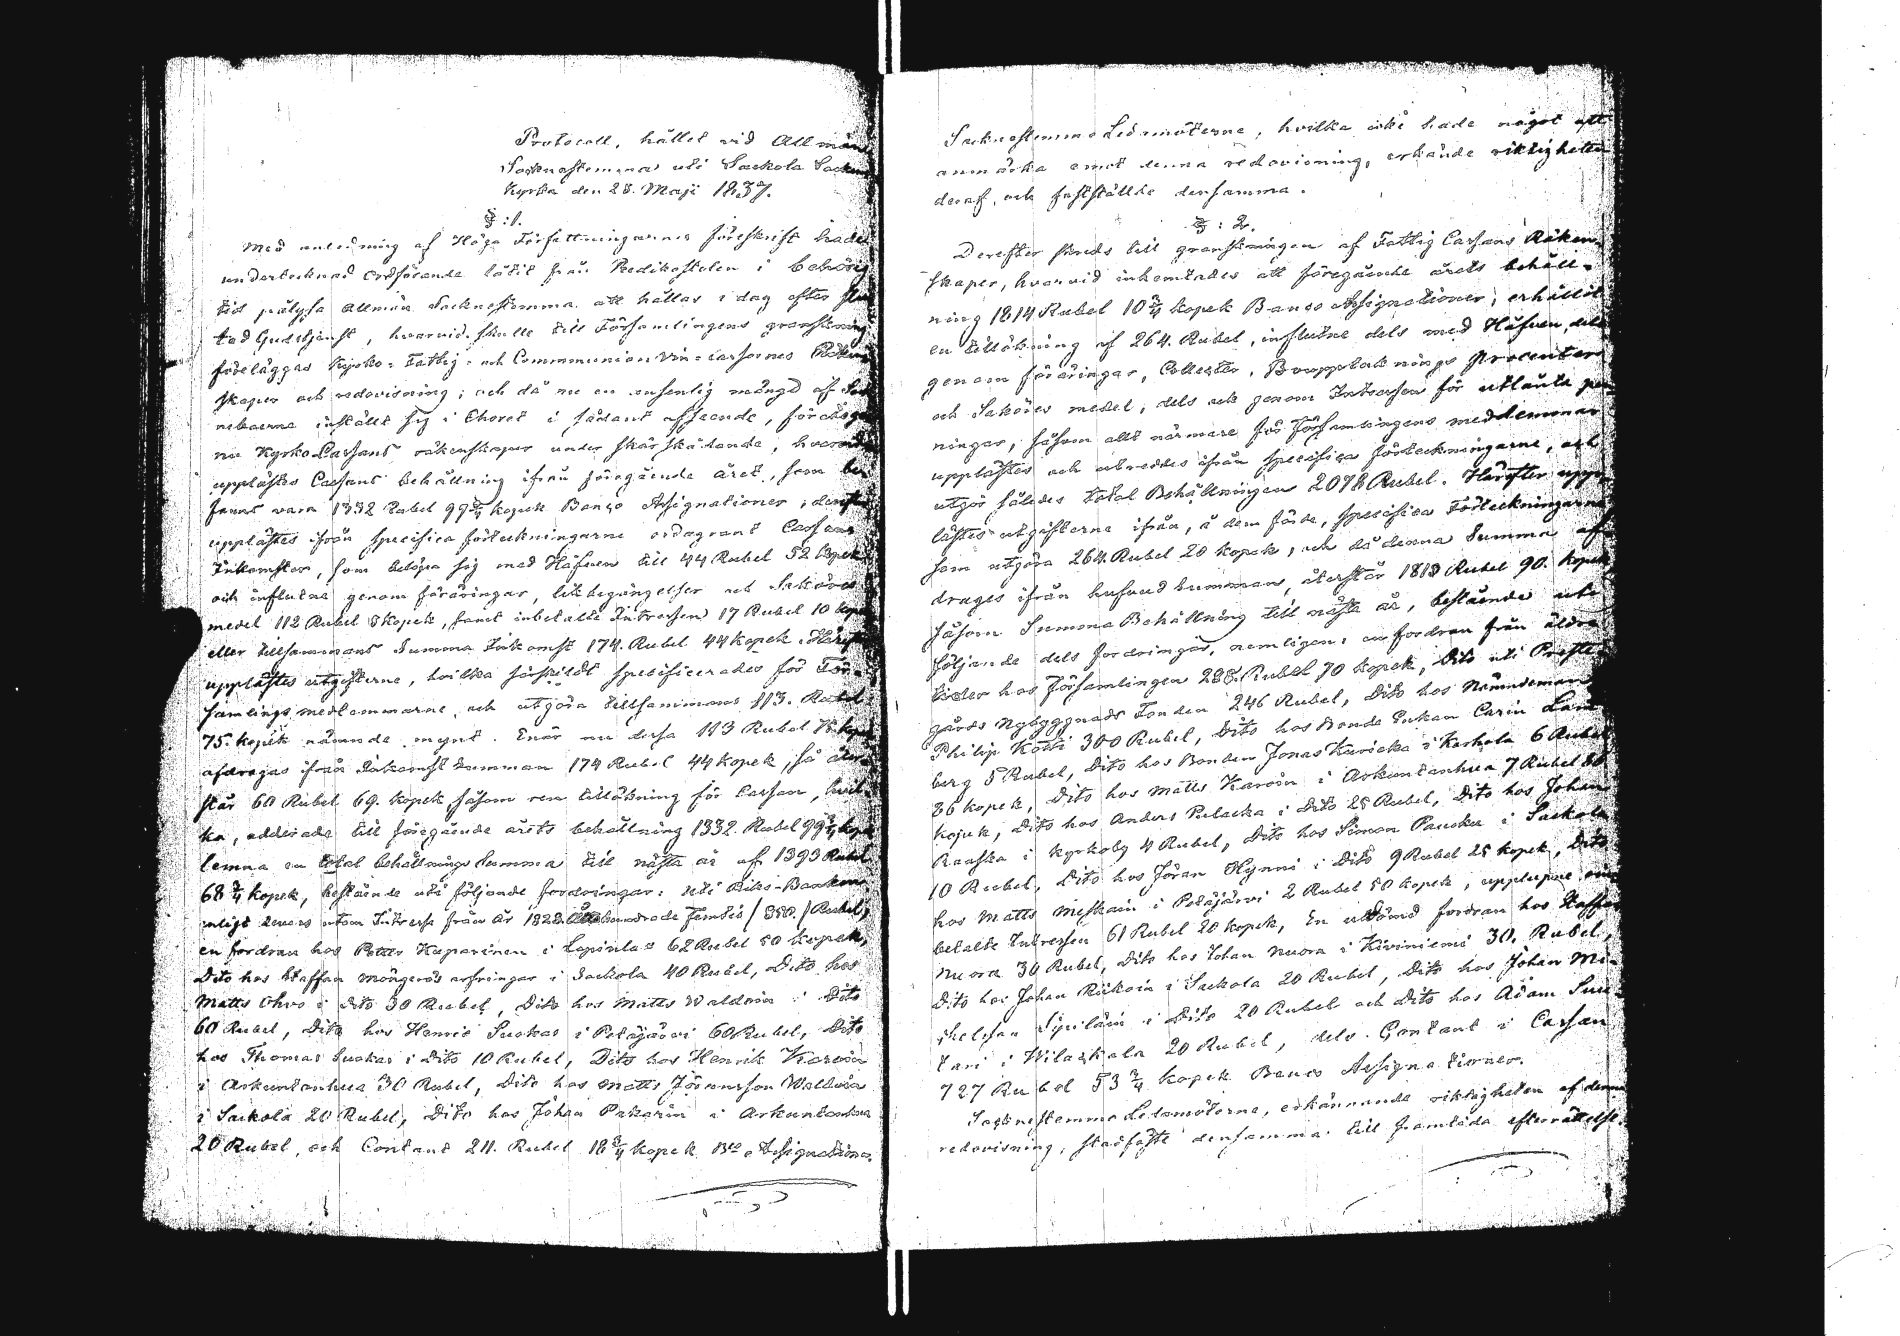 Protocoll, hållet vid Allmän
Socknestemma uti Sackola Socken
Kyrka den 28. Maji 1837.
§:1.
Med anledning af Höga Författningarnes föreskrift hade
undertecknad ordförande låtit från Predikostolen i behörig
tid pålysa allmän Socknestemma att hållas i dag efter slu
tad Gudstjenst, hvarvid skulle till Församlingens granskning
föreläggas Kyrko- Fattig- och Communion Vin-cassornes Räken
skaper och redovisning; och då nu en ansenlig mängd af Sock
neboerne instält sig i Choret i sådant afseende, företogs
nu Kyrko Cassans räkenskaper under skärskådande, hvarvid
upplästes Cassans behållning ifrån föregående året, som be
fants vara 1332 Rubel 99 3/4 kopek Banco Assignationer; derefter
upplästes ifrån specifica förteckningarne ordagrant Cassans
Inkomster, som belöpa sig med Håfven till 44 Rubel 52 kopek
och influtne genom föräringar, likbegängelser och Saköres
medel 112 Rubel 8 kopek, samt inbetalte Intressen 17 Rubel 10 kopek
eller tillsammans Summa Inkomst 174. Rubel 44 kopek. Härefter
upplästes utgifterne, hvilka särskildt specificerades för För-
samlings medlemmarne, och utgöra tillsammans 113. Rubel
75. kopek nämnde mynt. Enär nu dessa 113 Rubel 75. kopek
afdragas ifrån Inkomst Summan 174 Rubel 44 kopek, så åter-
står 60 Rubel 69. kopek, såsom ren tillökning för Cassan, hvil-
ka, adderade till föregående årets behållning 1332. Rubel 99 3/4 kopek
lemna en total behållnings Summa till nästa år af 1393 Rubel
68 3/4 kopek, bestående uti följande fordringar: uti Riks-Banken
enligt revers utom Intresse från år 1828. hundrade femtio / 850. / Rubel,
en fordran hos Petter Kaparinen i Lapinlax 62 Rubel 50 kopek,
Dito hos Staffan Mängerös arfvingar i Sackola 40 Rubel, Dito hos
Matts Ohvo i Dito 30 Rubel, Dito hos Matts Waldoin i Dito
60 Rubel, Dito hos Henric Suokas i Petäjärvi 60 Rubel, Dito
hos Thomas Suokas i Dito 10 Rubel, Dito hos Henrik Karvoin
i Arkuntanhua 30 Rubel, Dito hos Matts Göransson Waldoin
i Sackola 20 Rubel, Dito hos Johan Pakarin i Arkuntanhua
20 Rubel, och Contant 211. Rubel 18 3/4 kopek Bco Assignationer.
Socknestemmo Ledamöterne, hvilka icke hade något att
anmärka emot denna redovisning, erkände riktigheten
deraf, och fastställde densamma.
§:2.
Derefter skreds till granskningen af Fattig Cassans Räken-
skaper, hvarvid inhemtades att föregående årets behåll-
ning 1814 Rubel 10 3/4 kopek Banco Assignationer, erhållit
en tillökning af 264. Rubel, influtne dels med Håfven, dels
genom föräringar, Collecter, Bouppteknings Procenter
och Saköres medel, dels ock genom Intressen för utlånte pen
ningar, såsom allt närmare för Församlingens medlemmar
upplästes och utreddes ifrån specifica förteckningarne, och
utgör således total Behållningen 2078 Rubel. Härefter upp-
lästes utgifterne ifrån, å dem förde, specifica Förteckningarne
som utgöra 264. Rubel 20 kopek, och då denna Summa af-
drages ifrån hufvud Summan, återstår 1813 Rubel 90. kopek
såsom Summa Behållning till nästa år, bestående uti
följande dels fordringar, nemligen: en fordran från äldre
tider hos Församlingen 288. Rubel 70 kopek, Dito uti Preste-
gårds Nybyggnads Fonden 246 Rubel, Dito hos Nämndeman
Philip Kotti 300 Rubel, Dito hos Bonde Enkan Carin Lam
berg 5 Rubel, Dito hos Bonden Jonas Kuricka i Karhola 6 Rubel
86 kopek, Dito hos Matts Karvoin i Arkuntanhua 7 Rubel
kopek, Dito hos Anders Pulacka i Dito 25 Rubel, Dito hos Johan
Raaska i Kyrkoby 4 Rubel, Dito hos Simon Paucku i Sackola
10 Rubel, Dito hos Jöran Hynni i Dito 9 Rubel 25 kopek, Dito
hos Matts Miskain i Petäjärvi 2 Rubel 50 kopek, upplupne
betalte Intressen 61 Rubel 20 kopek, En utdömd fordran hos Staffan
Nuora 30 Rubel, Dito hos Johan Nuora i Kiviniemi 30. Rubel,
Dito hos Johan Riikoin i Sackola 20 Rubel, Dito hos Johan Mi-
chelsson i Dito 20 Rubel och Dito hos Adam Suu-
tari i Wilakkala 20 Rubel, dels Contant i Cassan
727 Rubel 53 3/4 kopek Banco Assignationer.
Socknestemmo Ledamöterne, erkännande riktigheten af denna
redovisning, stadfäste densamma till framtida efterrättelse.